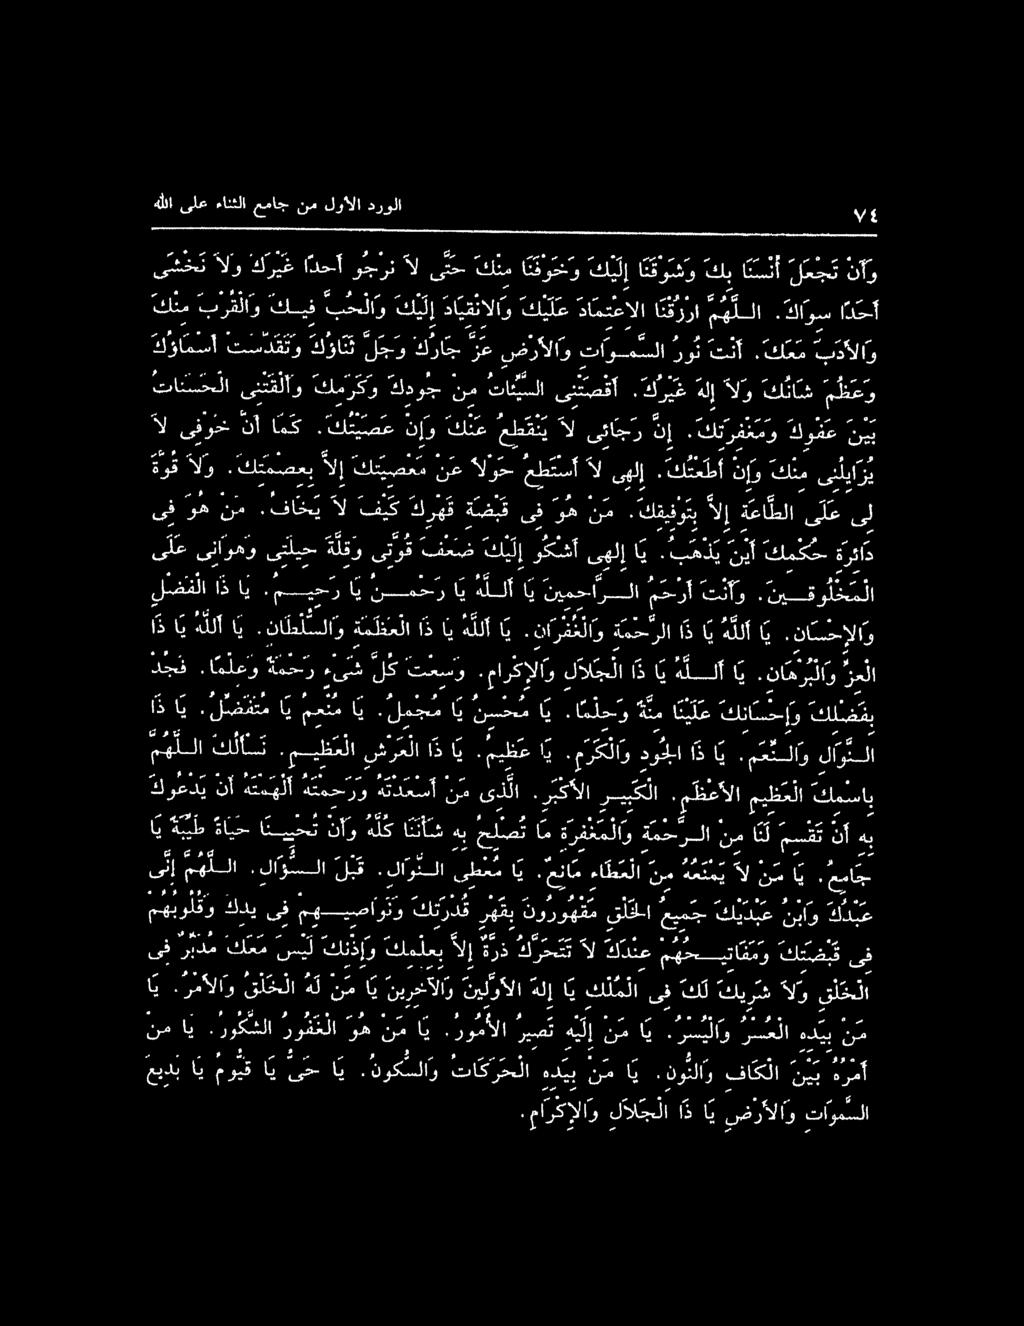 ٧٤ الورد الأول من جامع الثناء على الله
وَأَنْ تَجْعَلَ أُنْسَنَا بِكَ وَشَوْقَنَا إِلَيْكَ وَخَوْفَنَا مِنْكَ حَتَّى لاَ نَرْجُوَ أَحدًا غَيْرَكَ وَلاَ نَخْشَى
أَحَدًا سِوَاكَ. الـلَّهُمَّ ارْزُقْنَا الاِعْتِمَادَ عَلَيْكَ وَالانْقِيَادَ إِلَيْكَ وَالْحُبَّ فِيـكَ وَالْقُرْبَ مِنْكَ
وَالأَدَبَ مَعَكَ. أَنْتَ نُورُ السَّمـوَاتِ وَالأَرْضِ عَزَّ جَارُكَ وَجَلَّ ثَنَاؤُكَ وَتَقَدَّسَتْ أَسْمَاؤُكَ
وَعَظُمَ شَانُكَ وَلاَ إِلهَ غَيْرُكَ. أَقْصَتْنِى السَّيِّئَاتُ مِنْ جُودِكَ وَكَرَمِكَ وَأَلْقَتْنِى الْحَسَنَاتُ
بَيْنَ عَفْوِكَ وَمَغْفِرَتِكَ. إِنَّ رَجَائِى لاَ يَنْقَطِعُ عَنْكَ وَإِنْ عَصَيْتُكَ. كَمَا أَنَّ خَوْفِى لاَ
يُزَايِلُنِى مِنْكَ وَإِنْ أَطَعْتُكَ. إِلهِى لاَ أَسْتَطِعُ حَوْلاً عَنْ مَعْصِيَتِكَ إِلاَّ بِعِصْمَتِكَ. وَلاَ قُوَّةَ
لِى عَلَى الطَّاعَةِ إِلاَّ بِتَوْفِيقِكَ. مَنْ هُوَ فِى قَبْضَةِ قَهْرِكَ كَيْفَ لاَ يَخَافُ. مَنْ هُوَ فِى
دَائِرَةِ حُكْمِكَ أَيْنَ يَذْهَبُ. يَا إِلهِى أَشْكُو إِلَيْكَ ضَعْفَ قُوَّتِى وَقِلَّةَ حِيلَتِى وَهوَانِى عَلَى
الْمَخْلُوقِـينَ. وَأَنْتَ أَرْحَمُ الـرَّاحِمِينَ يَا أَلـلَّهُ يَا رَحْمـنُ يَا رَحِيـمُ. يَا ذَا الْفَضْلِ
وَالإِحْسَانِ. يَا أَللَّهُ يَا ذَا الرَّحْمَةِ وَالْغُفْرَانِ. يَا أَللَّهُ يَا ذَا الْعَظَمَةِ وَالسُّلْطَانِ. يَا أَللَّهُ يَا ذَا
الْعِزِّ وَالْبُرْهَانِ. يَا أَلـلَّهُ يَا ذَا الْجَلاَلِ وَالإِكْرَامِ. وَسِعْتَ كُلَّ شَىْءٍ رَحْمَةً وَعِلْمًا. فَجُدْ
بِفَضْلِكَ وَإِحْسَانِكَ عَلَيْنَا مِنَّةً وَحِلْمًا. يَا مُحْسِنُ يَا مُجْمِلُ. يَا مُنْعِمُ يَا مُتَفَضِّلُ. يَا ذَا
الـنَّوَالِ وَالـنِّعَمِ. يَا ذَا الْجُودِ وَالْكَرَمِ. يَا عَظِيمُ. يَا ذَا الْعَرْشِ الْعَظِيـمِ. نَسْأَلُكَ الـلَّهُمَّ
بِاسْمِكَ الْعَظِيمِ الأَعْظَمِ. الْكَبِيـرِ الأَكْبَرِ. الَّذِى مَنْ أَسْعَدْتَهُ وَرَحِمْتَهُ أَلْهَمْتَهُ أَنْ يَدْعُوكَ
بِهِ أَنْ تَقْسِمَ لَنَا مِنْ الـرَّحْمَةِ وَالْمَغْفِرَةِ مَا تُصْلِحُ بِهِ شَأْنَنَا كُلَّهُ وَأَنْ تُحْيِيـنَا حَيَاةً طَيِّبَةً يَا
جَامِعُ. يَا مَنْ لاَ يَمْنَعُهُ مِنَ الْعَطَاءِ مَانِعٌ. يَا مُعْطِى الـنَّوَالِ. قَبْلَ الـسُّؤَالِ. الـلَّهُمَّ إِنِّى
عَبْدُكَ وَابْنُ عَبْدَيْكَ جَمِيعُ الْخَلْقِ مَقْهُورُونَ بِقَهْرِ قُدْرَتِكَ وَنَوَاصِيـهِمْ فِى يَدِكَ وَقُلُوبُهُمْ
فِى قَبْضَتِكَ وَمَفَاتِيـحُهُمْ عِنْدَكَ لاَ تَتَحَرَّكُ ذَرَّةٌ إِلاَّ بِعِلْمِكَ وَإِذْنِكَ لَيْسَ مَعَكَ مُدَبِّرٌ فِى
الْخَلْقِ وَلاَ شَرِيكَ لَكَ فِى الْمُلْكِ يَا إِلهَ الأَوَّلِينَ وَالآخِرِينَ يَا مَنْ لَهُ الْخَلْقُ وَالأَمْرُ. يَا
مَنْ بِيَدِهِ الْعُسْرُ وَالْيُسْرُ. يَا مَنْ إِلَيْهِ تَصِيرُ الأُمُورُ. يَا مَنْ هُوَ الْغَفُورُ الشَّكُورُ. يَا مَنْ
أَمْرُهُ بَيْنَ الْكَافِ وَالنُّونِ. يَا مَنْ بِيَدِهِ الْحَرَكَاتُ وَالسُّكُونُ. يَا حَىُّ يَا قَيُّومُ يَا بَدِيعَ
السَّموَاتِ وَالأَرْضِ يَا ذَا الْجَلاَلِ وَالإِكْرَامِ.